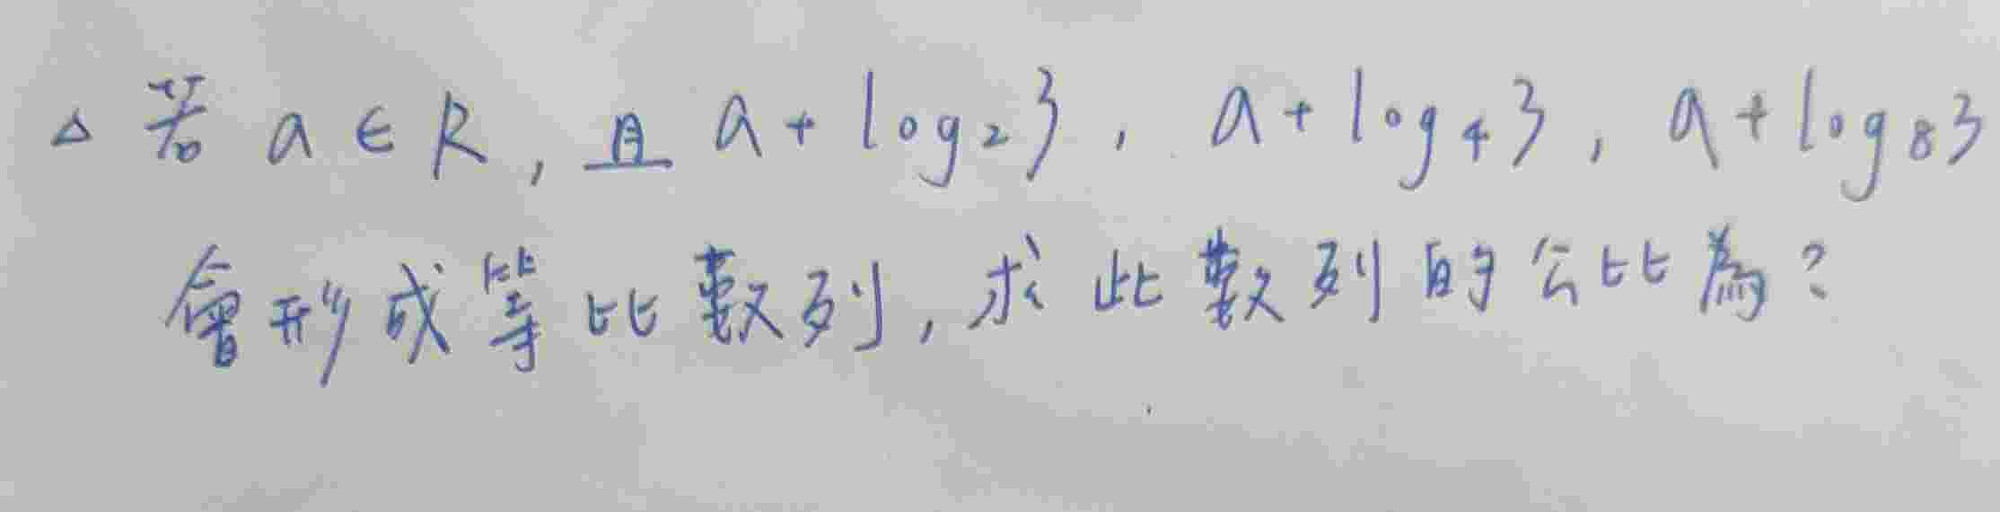 △ 若 a ∈ R, 且 a + log₂3, a + log₄3, a + log₈3
會形成等比數列, 求此數列的公比為?